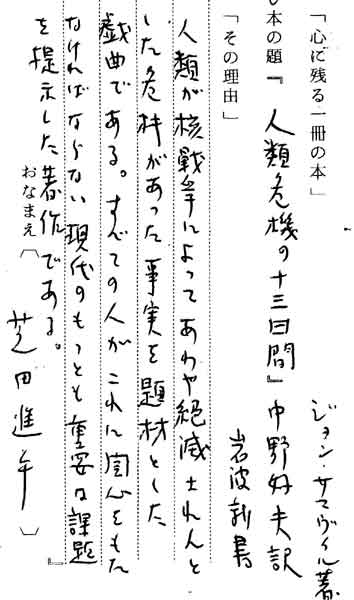 「心に残る一冊の本」
本の題『人類危機の十三日間』中野好夫訳
ジョン・サマヴィル著
岩波新書
「その理由」
人類が核戦争によってあわや絶滅されんと
した危機があった事実を題材とした
戯曲である。すべての人がこれに関心をもた
なければならない現代のもっとも重要な課題
を提示した著作である。
おなまえ〔芝田進午〕
』